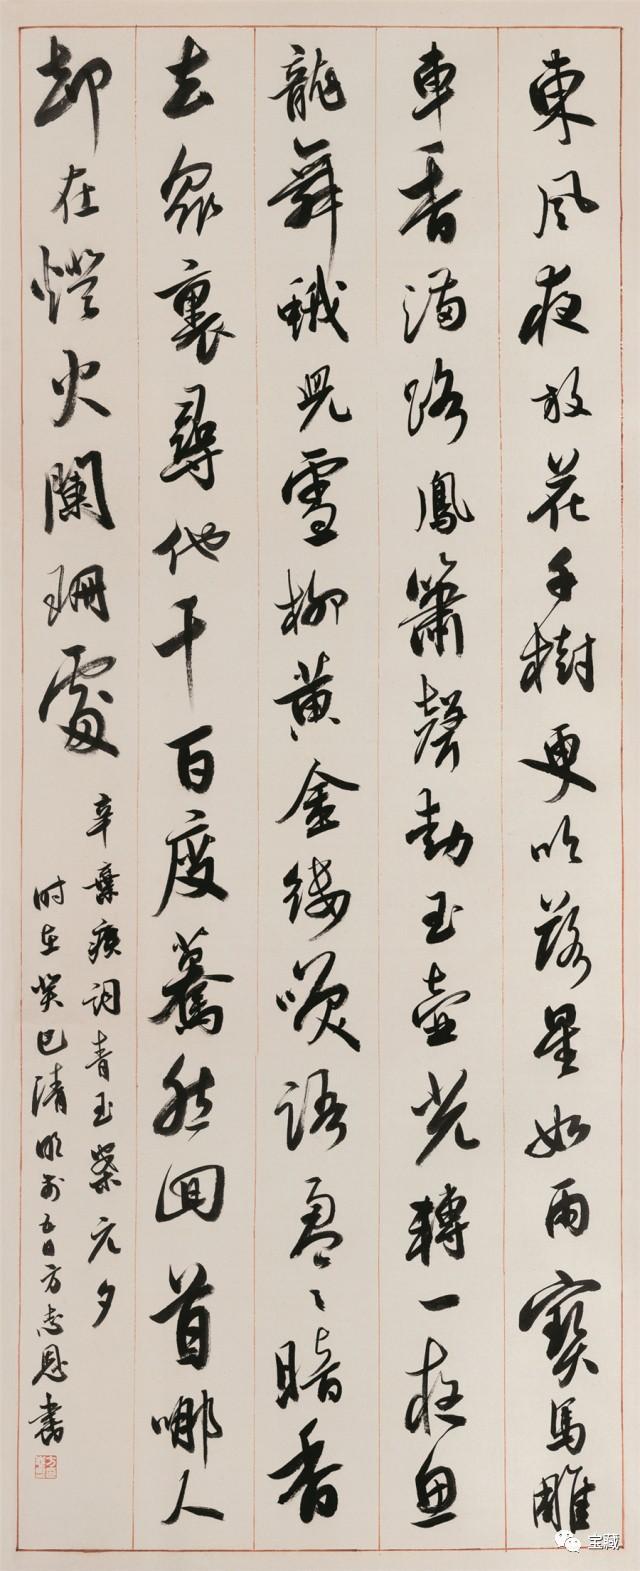 東風夜放花千樹更吹落星如雨寶馬雕
車香滿路鳳簫聲動玉壺光轉一夜魚
龍舞蛾兒雪柳黃金縷咲語盈〻暗香
去眾裏尋他千百度驀然回首哪人
却在燈火闌珊處
辛棄疾詞青玉案元夕
时在癸巳清明前五日方志恩書
宝藏